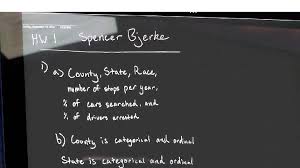 HW 1 Spencer Bjerke
1) a) County, State, Race,
number of stops per year,
% of cars searched, and
% of drivers arrested
b) County is categorical and ordinal
State is categorical and ordinal